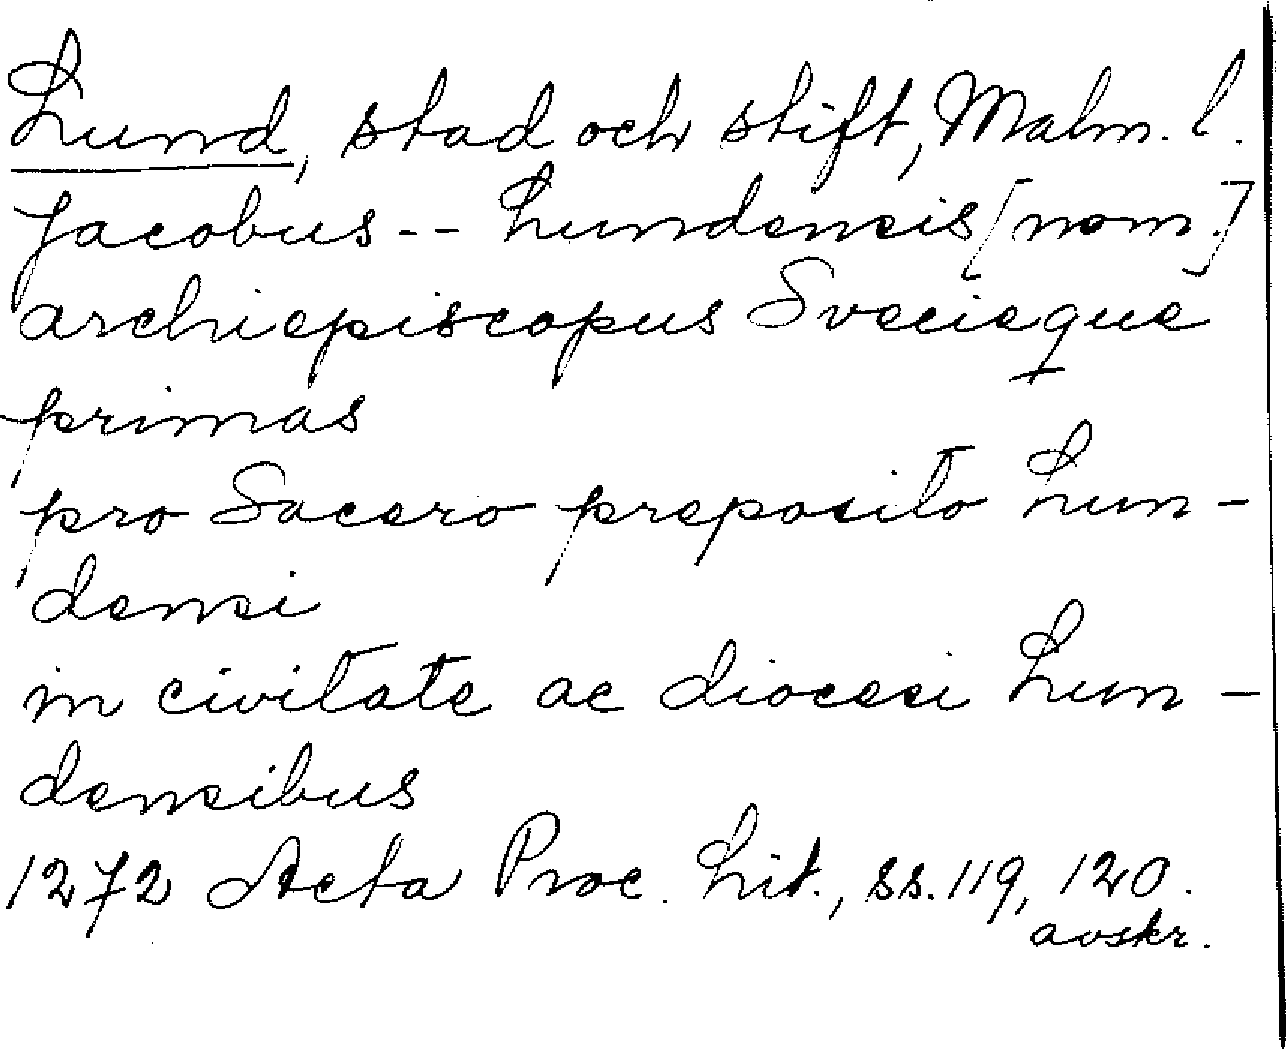 Lund, stad och stift, Malm. l.
Jacobus -- Lundensis [nom.]
archiepiscopus Svecieque
primas
pro Sacero preposito Lun-
densi
in civitate ac diocesi Lun-
densibus
1272 Acta Proc. Lit., ss. 119, 120.
avskr.